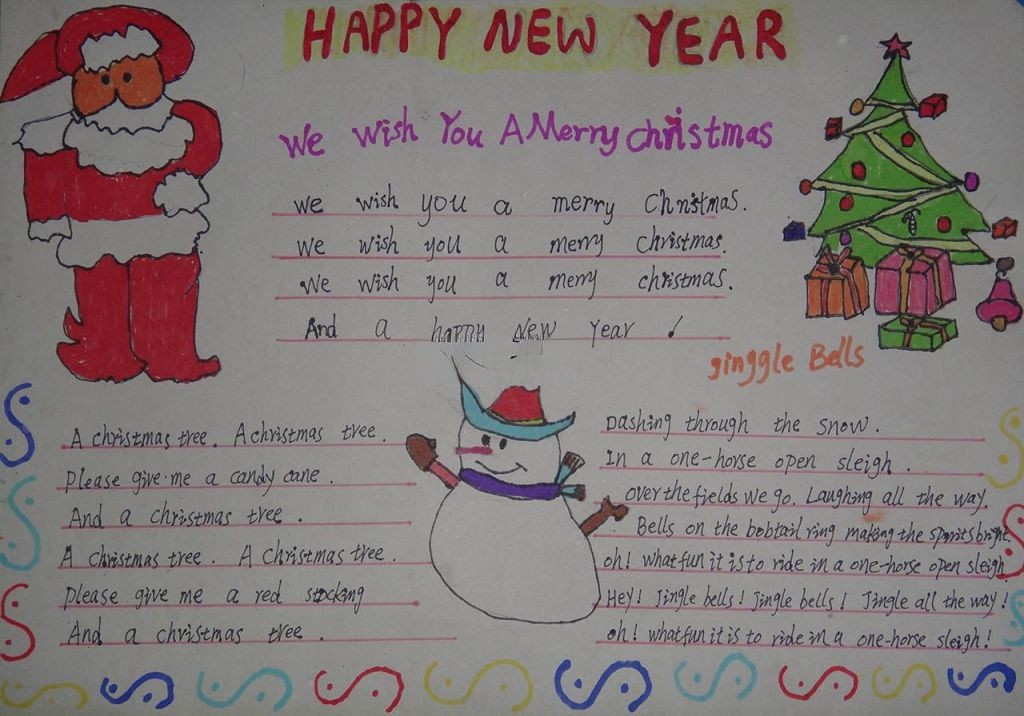 HAPPY NEW YEAR
We Wish You A Merry christmas
we wish you a merry Christmas.
we wish you a merry christmas.
we wish you a merry christmas.
And a happy New Year !
ginggle Bells
A christmas tree. A christmas tree.
Please give me a candy cane.
And a christmas tree.
A christmas tree. A christmas tree.
Please give me a red stocking
And a christmas tree.
Dashing through the snow.
In a one-horse open sleigh.
over the fields we go. Laughing all the way.
Bells on the bobtail ring making the spirits bright
oh! what fun it is to ride in a one-horse open sleigh
Hey! Jingle bells! Jingle bells! Jingle all the way!
oh! what fun it is to ride in a one-horse sleigh!